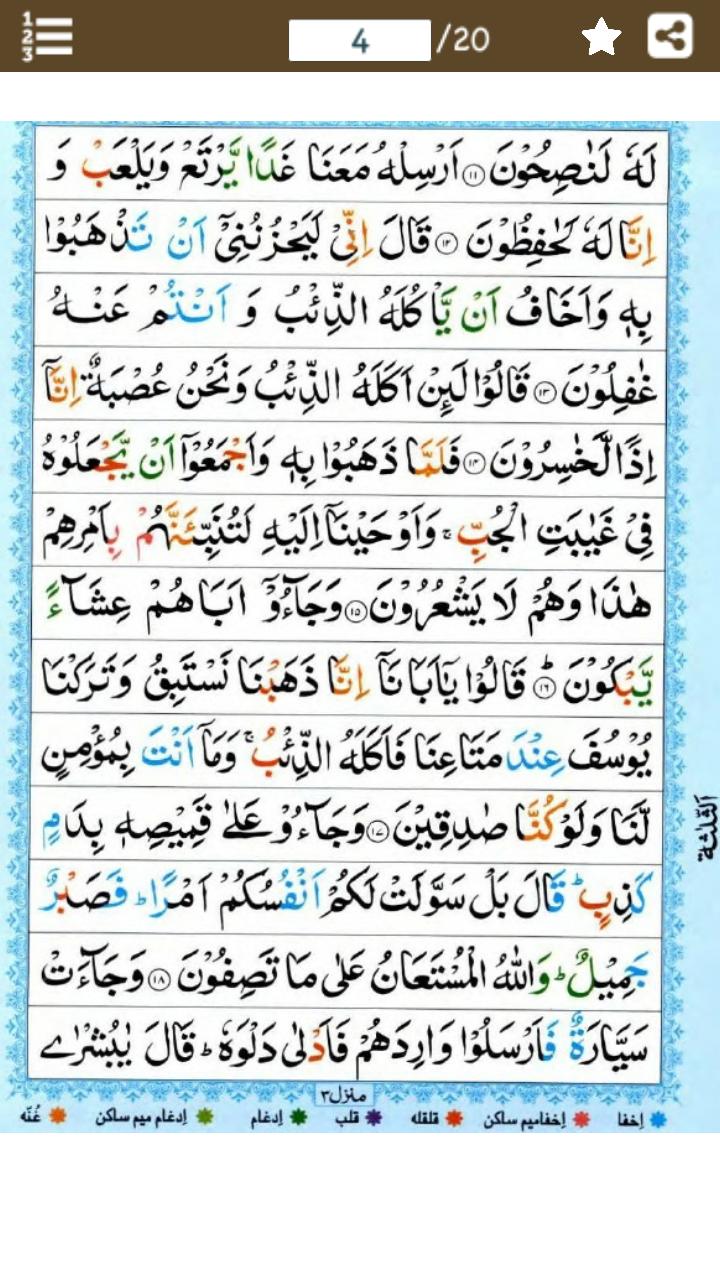 1
2
3
4
/20
لَهٗ لَنٰصِحُوْنَ ۝۱۱ اَرْسِلْهُ مَعَنَا غَدًا يَّرْتَعْ وَيَلْعَبْ وَ
اِنَّا لَهٗ لَحٰفِظُوْنَ ۝۱۲ قَالَ اِنِّيْ لَيَحْزُنُنِيْٓ اَنْ تَذْهَبُوْا
بِهٖ وَاَخَافُ اَنْ يَّاْكُلَهُ الذِّئْبُ وَ اَنْتُمْ عَنْهُ
غٰفِلُوْنَ ۝۱۳ قَالُوْا لَىِٕنْ اَكَلَهُ الذِّئْبُ وَنَحْنُ عُصْبَةٌ اِنَّآ
اِذًا لَّخٰسِرُوْنَ ۝۱۴ فَلَمَّا ذَهَبُوْا بِهٖ وَاَجْمَعُوْٓا اَنْ يَّجْعَلُوْهُ
فِيْ غَيٰبَتِ الْجُبِّ ۚ وَاَوْحَيْنَآ اِلَيْهِ لَتُنَبِّئَنَّهُمْ بِاَمْرِهِمْ
هٰذَا وَهُمْ لَا يَشْعُرُوْنَ ۝۱۵ وَجَآءُوْٓ اَبَاهُمْ عِشَآءً
يَّبْكُوْنَ ؕ ۝۱۶ قَالُوْا يٰٓاَبَانَآ اِنَّا ذَهَبْنَا نَسْتَبِقُ وَتَرَكْنَا
يُوْسُفَ عِنْدَ مَتَاعِنَا فَاَكَلَهُ الذِّئْبُ ۚ وَمَآ اَنْتَ بِمُؤْمِنٍ
لَّنَا وَلَوْ كُنَّا صٰدِقِيْنَ ۝۱۷ وَجَآءُوْ عَلٰى قَمِيْصِهٖ بِدَمٍ
كَذِبٍ ؕ قَالَ بَلْ سَوَّلَتْ لَكُمْ اَنْفُسُكُمْ اَمْرًا ؕ فَصَبْرٌ
جَمِيْلٌ ؕ وَاللّٰهُ الْمُسْتَعَانُ عَلٰى مَا تَصِفُوْنَ ۝۱۸ وَجَآءَتْ
سَيَّارَةٌ فَاَرْسَلُوْا وَارِدَهُمْ فَاَدْلٰى دَلْوَهٗ ؕ قَالَ يٰبُشْرٰى
الثلثة
منزل۳
اِخفا اِخفامیم ساکن قلقله قلب اِدغام اِدغام میم ساکن غُنّه